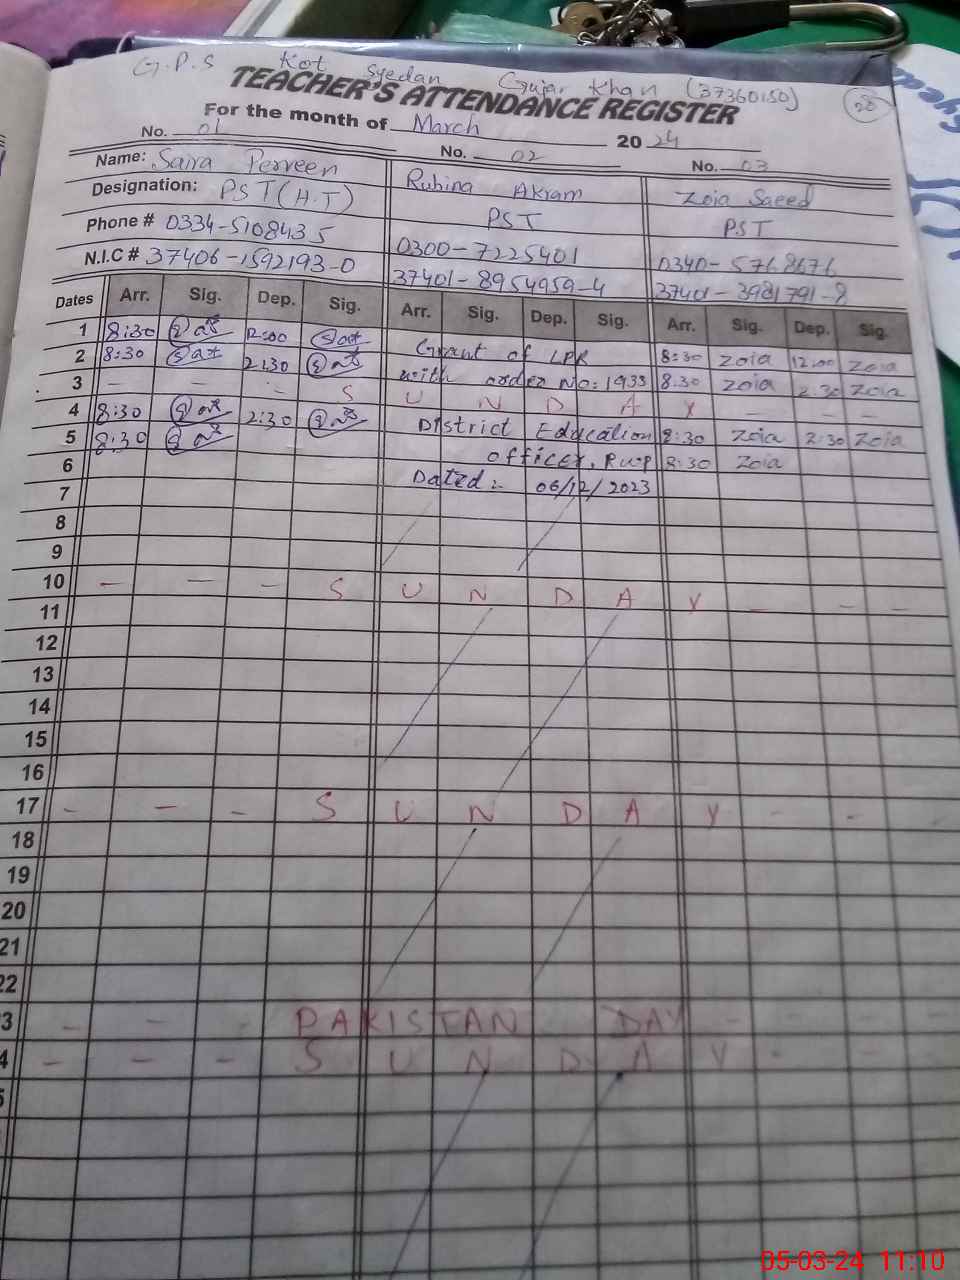 G.P.S Kot Syedan Gujar Khan (37360150)
TEACHER'S ATTENDANCE REGISTER
For the month of March 2024
No. 01 No. 02 No. 03
Name: Saira Perveen Rubina Akram Zoia Saeed
Designation: PST(H.T) PST PST
Phone # 0334-5108435 0300-7225401 0340-5768676
N.I.C # 37406-1592193-0 37401-8954959-4 37401-3981791-8
Dates Arr. Sig. Dep. Sig. Arr. Sig. Dep. Sig. Arr. Sig. Dep. Sig.
1 8:30 12:00 Grant of LPR 8:30 Zoia 12:00 Zoia
2 8:30 2:30 with order No: 1933 8:30 Zoia 2:30 Zoia
3 - - - S U N D A Y - - -
4 8:30 2:30 District Education 8:30 Zoia 2:30 Zoia
5 8:30 officer, Rwp 8:30 Zoia
6 Dated:- 06/12/2023
7
8
9
10 - - - S U N D A Y - - -
11
12
13
14
15
16
17 - - - S U N D A Y - -
18
19
20
21
22
3 - - - PAKISTAN DAY - - -
4 - - - S U N D A Y - - -
5
05-03-24 11:10